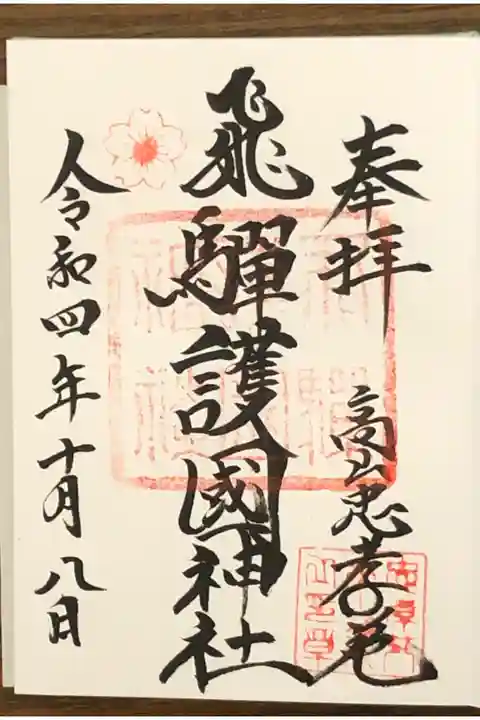 奉拝
高山忠孝
飛驒護國神社
令和四年十月八日